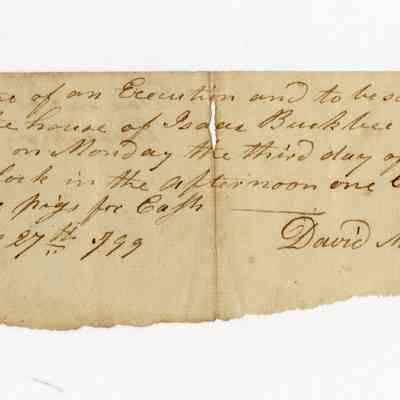 of an Execution and to be so
house of Isaac Buckbee
on Monday the third day of
lock in the afternoon one
pigs for Cash
27th 1799
David M